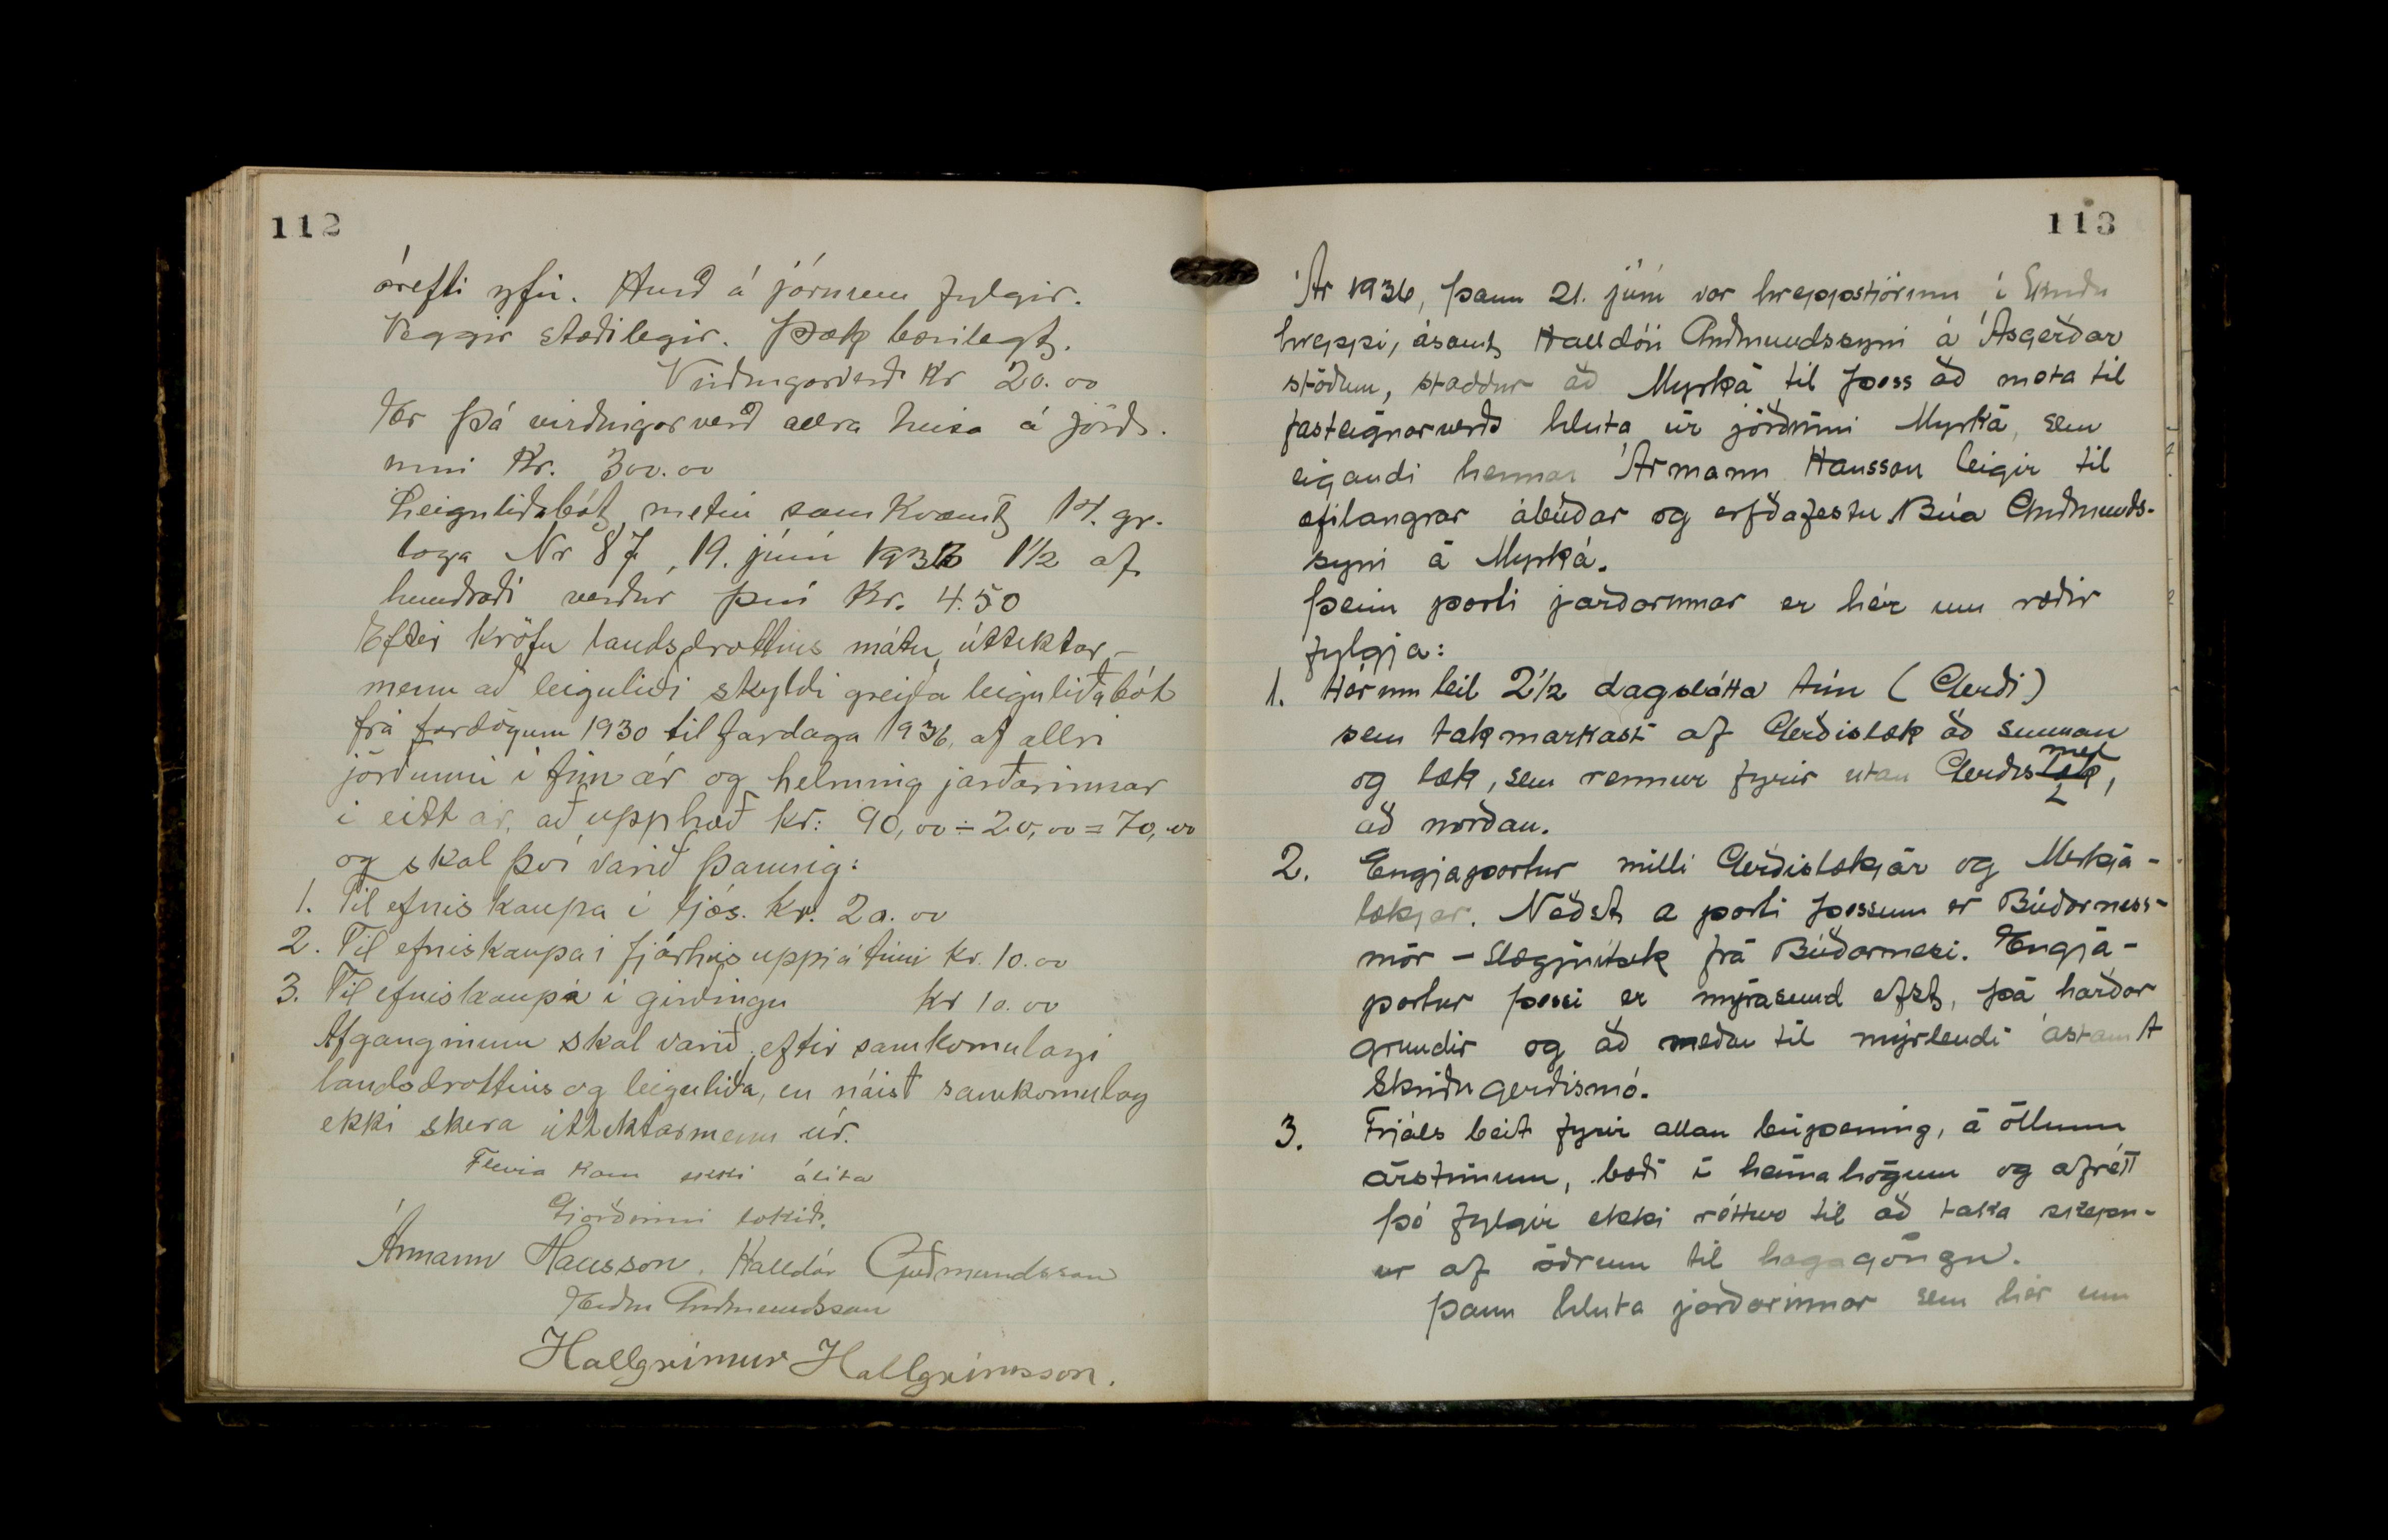 112
árefti yfir. Hurð á járnum fylgir.
Veggir stæðilegir. Þak bærilegt.
Virðingarverð Kr 20.00
Er þá virðingarverð allra húsa á jörð-
inni Kr. 300.00
Leiguliðabót metin samkvæmt 14. gr.
laga Nr 87, 19. júní 1933 1½ af
hundraði verður því Kr. 4.50
Eftir kröfu landsdrottins mátu úttektar-
menn að leiguliði skyldi greiða leiguliðabót
frá fardögum 1930 til fardaga 1936, af allri
jörðunni í fim ár og helming jarðarinnar
í eitt ár, að upphæð kr: 90,00 ÷ 20,00 = 70,00
og skal því varið þannig:
1. Til efniskaupa í fjós. Kr. 20.00
2. Til efniskaupa i fjárhús uppi á túni Kr. 10.00
3. Til efniskaupa i girðingu Kr 10.00
Afganginum skal varið eftir samkomulagi
landsdrottins og leiguliða, en náist samkomulag
ekki skera úttektarmenn úr.
Fleira kom ekki álita
Gjörðinni lokið.
Ármann Hansson. Halldór Guðmundsson
Guðmundsson
Hallgrímur Hallgrímsson.
113
Ár 1936, þann 21. júní var hreppstjórinn í Skriðu
hreppi, ásamt Halldóri Guðmundssyni á Ásgerðar
stöðum, staddur að Myrká til þess að meta til
fasteignarverðs hluta úr jörðinni Myrká, sem
eigandi hennar Ármann Hansson leigir til
æfilangrar ábúðar og erfðafestu Búa Guðmunds-
syni á Myrká.
Þeim parti jarðarinnar er hér um ræðir
fylgja:
1. Hér um bil 2½ dagslátta tún (Gerði)
sem takmarkast af Gerðislæk að sunnan
og læk, sem rennur fyrir utan Gerðislæk,
að norðan.
2. Engjapartur milli Gerðislækjar og Merkja-
lækjar. Neðst á parti þessum er Búðarness-
mór - Slægjuítak frá Búðarnesi. Engja-
partur þessi er mýrasund efst, þá harðar
grundir og að neðan til mýrlendi ásamt
Skriðugerðismó.
3. Frjáls beit fyrir allan búpening, á öllum
árstímum, bæði í heimahögum og afrétt
Þó fylgir ekki réttur til að taka skepn-
ur af öðrum til hagagöngu.
Þann hluta jarðarinnar sem hér um